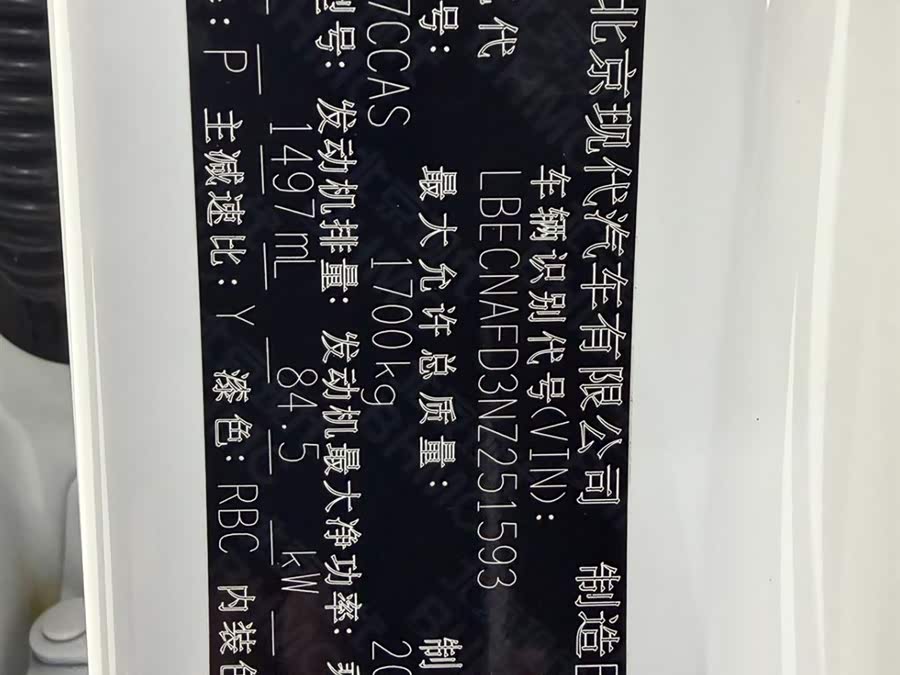 北京现代汽车有限公司 制造
车辆识别代号(VIN):
代 LBECNAFD3NZ251593
号: 最大允许总质量: 制
7CCAS 1700kg 20
型号: 发动机排量: 发动机最大净功率:
1497mL 84.5 kW
: P 主减速比: Y 漆色: RBC 内装色